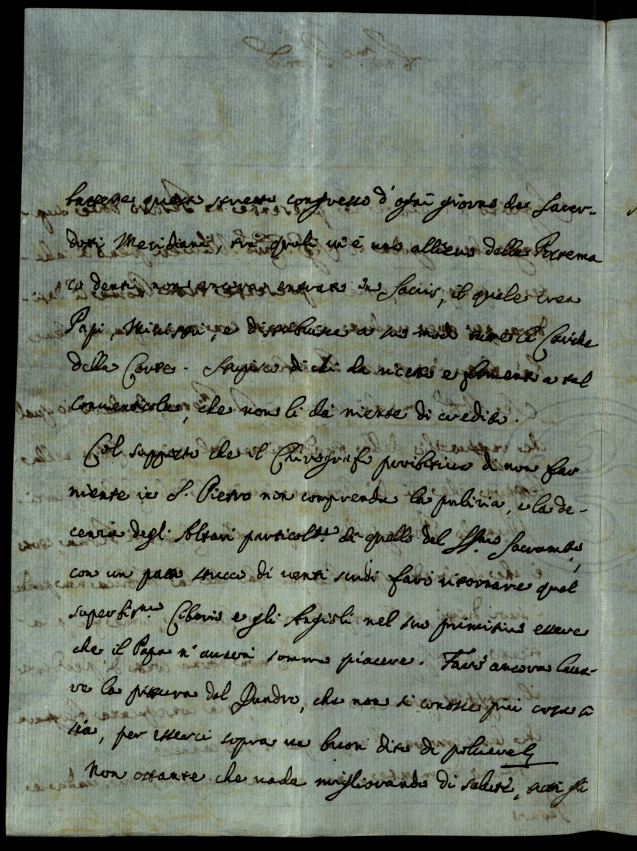 questo congresso d'ogni giorno de Sacer-
doti Meridiani, tra quali vi è uno allievo della
non ancora entrato in Sacris, il quale crea
Papi, Ministri, e distribuisce a suo modo tutte le Cariche
della Corte. Stupisco di chi dà ricetto e fomento a tal
conventicola, che non li dà niente di credito.
Col supposto che il Chirografo proibitivo di non far
niente in S. Pietro non comprenda la pulizia, e la de-
cenza degli Altari particolte. di quello del SSmo Sacramto,
con un pato stucco di venti scudi farò ritornare quel
superbissmo Ciborio e gli Angioli nel suo primitivo essere
che il Papa n'averà sommo piacere. Farò ancora lava-
re la pittura del Quadro, che non si conosce più cosa
sia, per esserci sopra un buon dito di polvere
Non ostante che vada migliorando di salute,